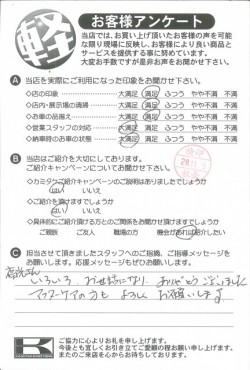 軽
お客様アンケート
当店では、お買い上げ頂いたお客様の声を可能
な限り現場に反映し、お客様により良い商品と
サービスを提供する事に努めています。
大変お手数ですが是非お声をお聞かせ下さい。
A 当店を実際にご利用になった印象をお聞かせ下さい。
◇店の印象 大満足 満足 ふつう やや不満 不満
◇店内・展示場の清掃 大満足 満足 ふつう やや不満 不満
◇お車の品揃え 大満足 満足 ふつう やや不満 不満
◇営業スタッフの対応 大満足 満足 ふつう やや不満 不満
◇納車時のお車の状態 大満足 満足 ふつう やや不満 不満
B 当店はご紹介を大切にしております。
ご紹介キャンペーンについてお聞かせ下さい。
◇カミタケご紹介キャンペーンのご説明はありましたでしょうか
はい いいえ
◇ご紹介を頂けますでしょうか
はい いいえ
◇具体的にご紹介頂ける方とのご関係をお聞かせ頂けますでしょうか
ご親戚 ご友人 職場の方 機会があれば紹介したい
C 担当させて頂きましたスタッフへのご指摘、ご指導メッセージを
お願いします。応援メッセージもぜひお願いします。
いろいろ、お世話になり、ありがとうございました
アフターケアの方も よろしく お願いします。
K
ご協力に心よりお礼を申し上げます。
今後とも宜しくお引き立てご愛顧の程お願い申し上げます。
またのご来店を心からお待ちしております。